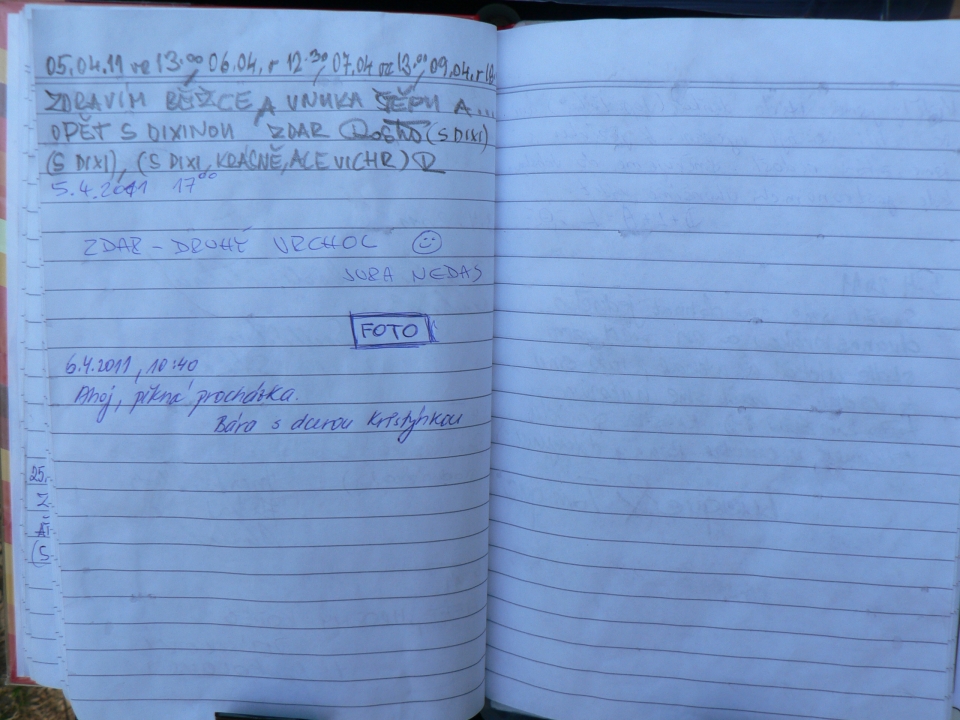 05.04.11 ve 13.00, 06.04. v 12.30, 07.04 ve 13.00, 09.04. v
ZDRAVÍM BĚŽCE A VNUKA ŠTĚPU A...
OPĚT S DIXINOU ZDAR (S DIXI)
(S DIXI), (S DIXI, KRÁSNĚ, ALE VICHR)
5.4.2011 17 00
ZDAR - DRUHÝ VRCHOL ☺
JURA NEDAS
FOTO
6.4.2011, 10:40
Ahoj, pěkná procházka.
Bára s dcerou Kristýnkou
25.
Z
(S